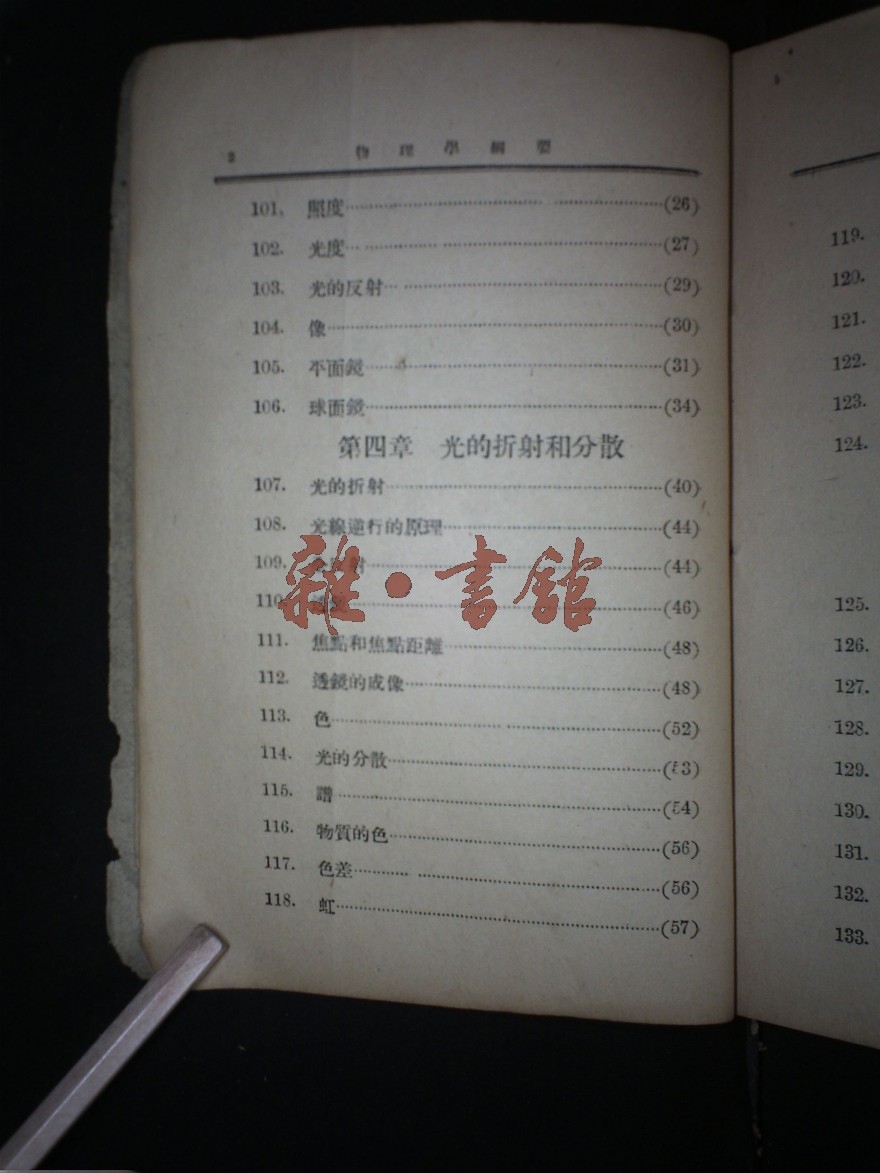 2 物理學綱要
101. 照度……(26)
102. 光度……(27)
103. 光的反射……(29)
104. 像……(30)
105. 平面鏡……(31)
106. 球面鏡……(34)
第四章 光的折射和分散
107. 光的折射……(40)
108. 光線逆行的原理……(44)
109. 射……(44)
110 ……(46)
111. 焦點和焦點距離……(48)
112. 透鏡的成像……(48)
113. 色……(52)
114. 光的分散……(53)
115. 譜……(54)
116. 物質的色……(56)
117. 色差……(56)
118. 虹……(57)
雜·書館
119.
120.
121.
122.
123.
124.
125.
126.
127.
128.
129.
130.
131.
132.
133.